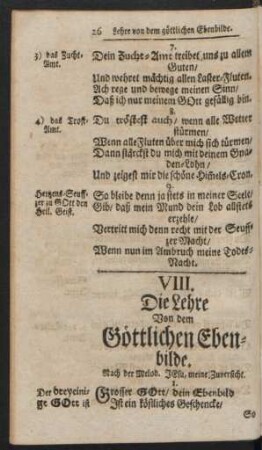 26 Lehre von dem göttlichen Ebenbilde.
7.
3) das Zucht-Amt.
Dein Zucht-Amt treibet uns zu allem
Guten/
Und wehret mächtig allen Laster-Fluten.
Ach rege und bewege meinen Sinn/
Daß ich nur meinem GOtt gefällig bin.
8.
4) das Trost-Amt.
Du tröstest auch/ wenn alle Wetter
stürmen/
Wenn alle Fluten über mich sich türmen/
Dann stärckst du mich mit deinem Gna-
den-Lohn/
Und zeigest mir die schöne Himels-Cron.
9.
Hertzens-Seuff-
zer zu GOtt den
Heil. Geist.
So bleibe denn ja stets in meiner Seele/
Gib/ daß mein Mund dein Lob allstets
erzehle/
Vertritt mich denn recht mit der Seuff-
zer Macht/
Wenn nun im Ambruch meine Todes-
Nacht.
VIII.
Die Lehre
Von dem
Göttlichen Eben-
bilde.
Nach der Melod. JEsu, meine Zuversicht.
1.
Der dreyeini-
ge GOtt ist
Grosser GOtt/ dein Ebenbild
Ist ein köstliches Geschencke/
So